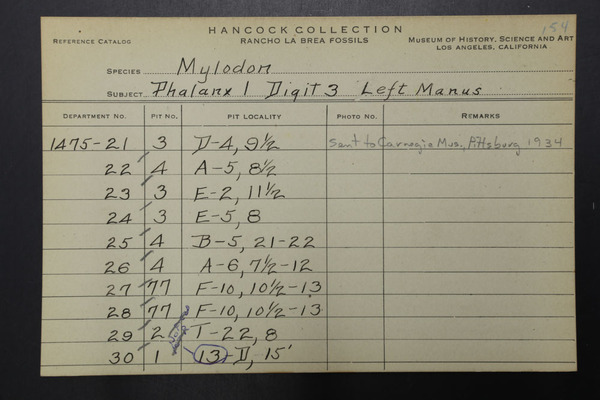 154
HANCOCK COLLECTION
REFERENCE CATALOG RANCHO LA BREA FOSSILS MUSEUM OF HISTORY, SCIENCE AND ART
LOS ANGELES, CALIFORNIA
SPECIES Mylodon
SUBJECT Phalanx 1 Digit 3 Left Manus
DEPARTMENT NO. PIT NO. PIT LOCALITY PHOTO NO. REMARKS
1475-21 3 D-4, 9½ Sent to Carnegie Mus., Pittsburg 1934
22 4 A-5, 8½
23 3 E-2, 11½
24 3 E-5, 8
25 4 B-5, 21-22
26 4 A-6, 7½-12
27 77 F-10, 10½-13
28 77 F-10, 10½-13
29 2 T-22, 8
30 1 13-D, 15'